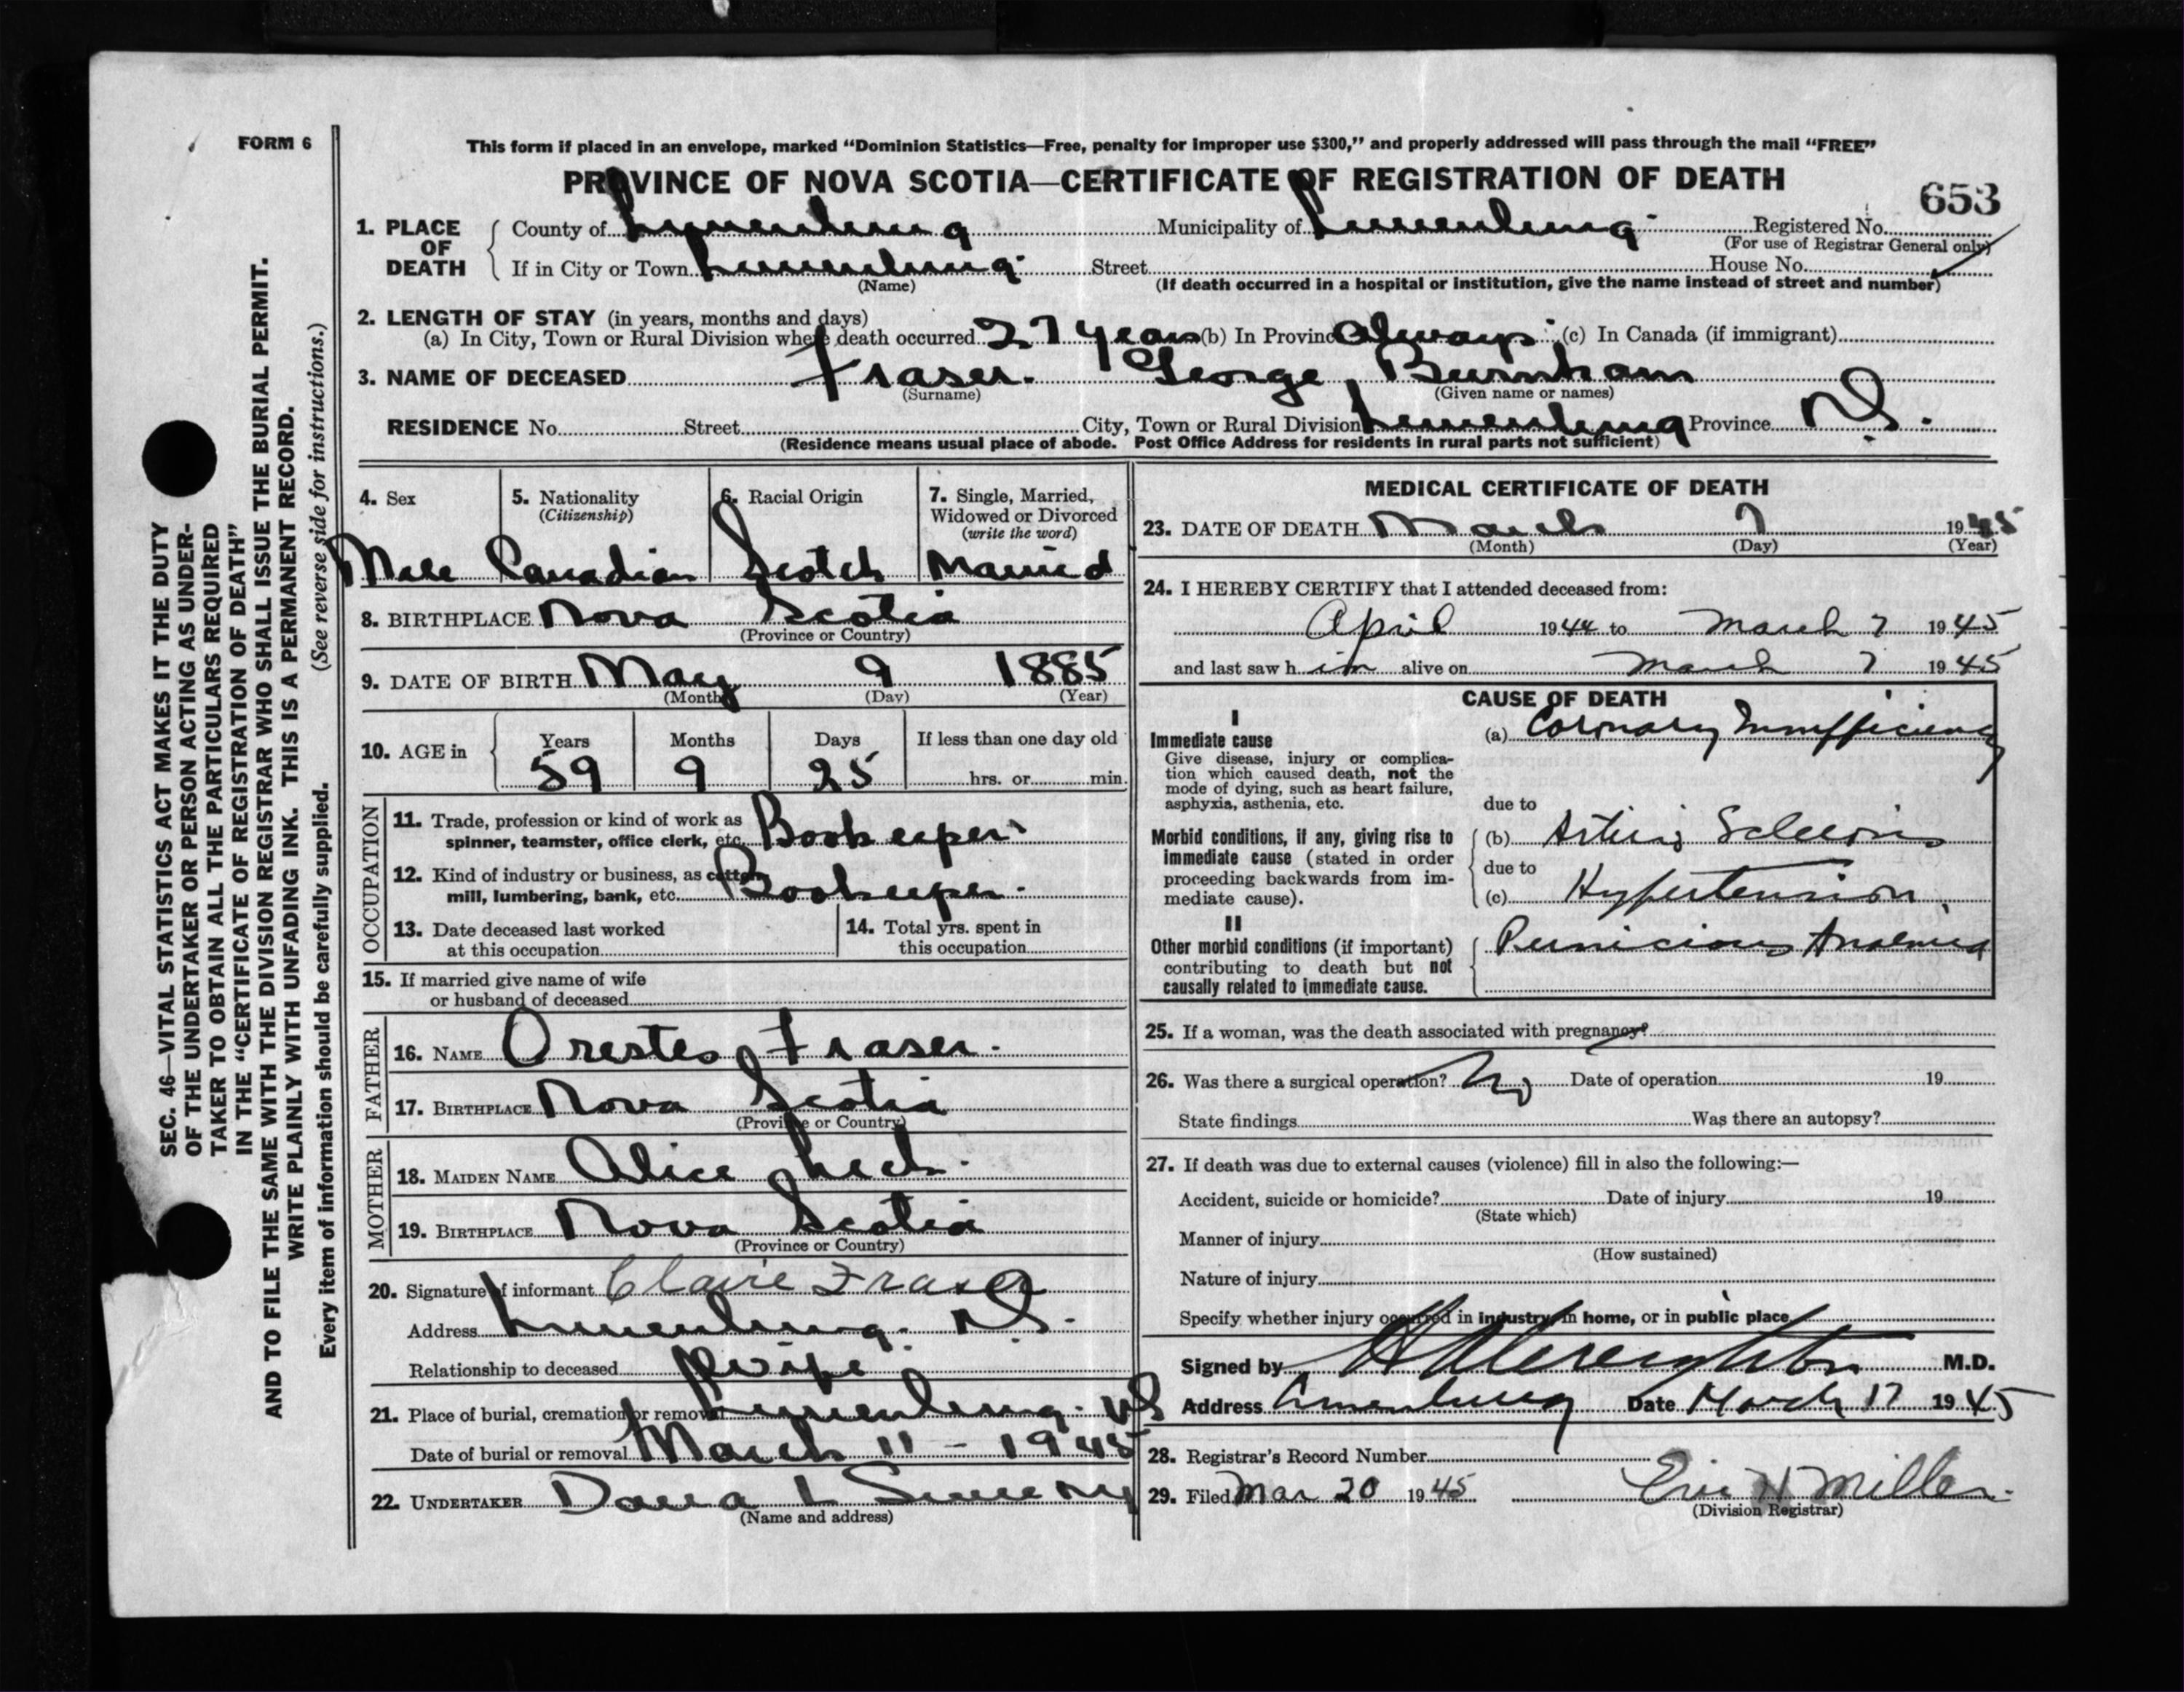 FORM 6
This form if placed in an envelope, marked “Dominion Statistics—Free, penalty for improper use $300,” and properly addressed will pass through the mail “FREE”
PROVINCE OF NOVA SCOTIA—CERTIFICATE OF REGISTRATION OF DEATH
653
1. PLACE OF DEATH
County of Lunenburg Municipality of Lunenburg Registered No.
(For use of Registrar General only)
If in City or Town Lunenburg Street House No.
(Name) (If death occurred in a hospital or institution, give the name instead of street and number)
2. LENGTH OF STAY (in years, months and days)
(a) In City, Town or Rural Division where death occurred 27 years (b) In Province Always (c) In Canada (if immigrant)
3. NAME OF DECEASED Fraser. George Burnham
(Surname) (Given name or names)
RESIDENCE No. Street City, Town or Rural Division Lunenburg Province N.S.
(Residence means usual place of abode. Post Office Address for residents in rural parts not sufficient)
4. Sex Male
5. Nationality (Citizenship) Canadian
6. Racial Origin Scotch
7. Single, Married, Widowed or Divorced (write the word) Married
8. BIRTHPLACE Nova Scotia
(Province or Country)
9. DATE OF BIRTH May 9 1885
(Month) (Day) (Year)
10. AGE in Years 59 Months 9 Days 25 If less than one day old hrs. or min.
OCCUPATION
11. Trade, profession or kind of work as spinner, teamster, office clerk, etc. Bookeeper
12. Kind of industry or business, as cotton mill, lumbering, bank, etc. Bookeeper.
13. Date deceased last worked at this occupation
14. Total yrs. spent in this occupation
15. If married give name of wife or husband of deceased
FATHER
16. NAME Orestes Fraser.
17. BIRTHPLACE Nova Scotia
(Province or Country)
MOTHER
18. MAIDEN NAME Alice
19. BIRTHPLACE Nova Scotia
(Province or Country)
20. Signature of informant Claire Fraser
Address Lunenburg. N.S.
Relationship to deceased Wife
21. Place of burial, cremation or removal Lunenburg. NS
Date of burial or removal March 11 - 1945
22. UNDERTAKER
(Name and address)
MEDICAL CERTIFICATE OF DEATH
23. DATE OF DEATH March 7 1945
(Month) (Day) (Year)
24. I HEREBY CERTIFY that I attended deceased from:
April 1944 to March 7 1945
and last saw him alive on March 7 1945
CAUSE OF DEATH
I
Immediate cause
Give disease, injury or complication which caused death, not the mode of dying, such as heart failure, asphyxia, asthenia, etc.
(a) Coronary Insufficiency
due to
Morbid conditions, if any, giving rise to immediate cause (stated in order proceeding backwards from immediate cause).
(b)
due to
(c) Hypertension
II
Other morbid conditions (if important) contributing to death but not causally related to immediate cause.
Pernicious Anaemia
25. If a woman, was the death associated with pregnancy?
26. Was there a surgical operation? No Date of operation 19
State findings Was there an autopsy?
27. If death was due to external causes (violence) fill in also the following:—
Accident, suicide or homicide? Date of injury 19
(State which)
Manner of injury
(How sustained)
Nature of injury
Specify whether injury occurred in industry, in home, or in public place
Signed by Creighton M.D.
Address Lunenburg Date March 17 1945
28. Registrar's Record Number
29. Filed Mar 20 1945 Eric H Miller
(Division Registrar)
SEC. 46—VITAL STATISTICS ACT MAKES IT THE DUTY
OF THE UNDERTAKER OR PERSON ACTING AS UNDER-
TAKER TO OBTAIN ALL THE PARTICULARS REQUIRED
IN THE “CERTIFICATE OF REGISTRATION OF DEATH”
AND TO FILE THE SAME WITH THE DIVISION REGISTRAR WHO SHALL ISSUE THE BURIAL PERMIT.
WRITE PLAINLY WITH UNFADING INK. THIS IS A PERMANENT RECORD.
Every item of information should be carefully supplied. (See reverse side for instructions.)